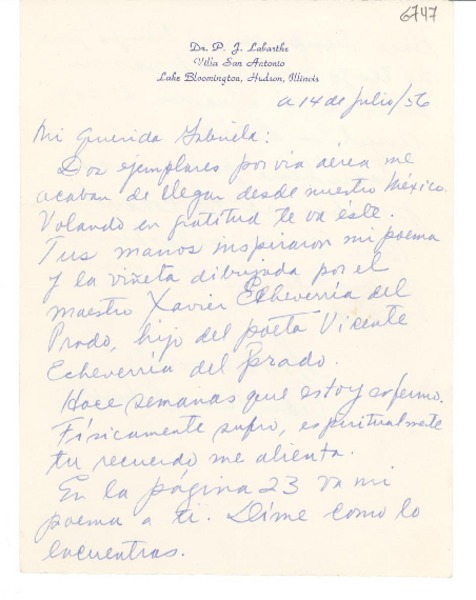 6747
Dr. P. J. Labarthe
Villa San Antonio
Lake Bloomington, Hudson, Illinois
a 14 de julio/56
Mi Querida Gabriela:
Dos ejemplares por vía aérea me
acaban de llegar desde nuestro México.
Volando en gratitud te va éste.
Tus manos inspiraron mi poema
y la viñeta dibujada por el
maestro Xavier Echeverría del
Prado, hijo del poeta Vicente
Echeverría del Prado.
Hace semanas que estoy enfermo.
Físicamente sufro, espiritualmente
tu recuerdo me alienta.
En la página 23 va mi
poema a ti. Dime como lo
encuentras.